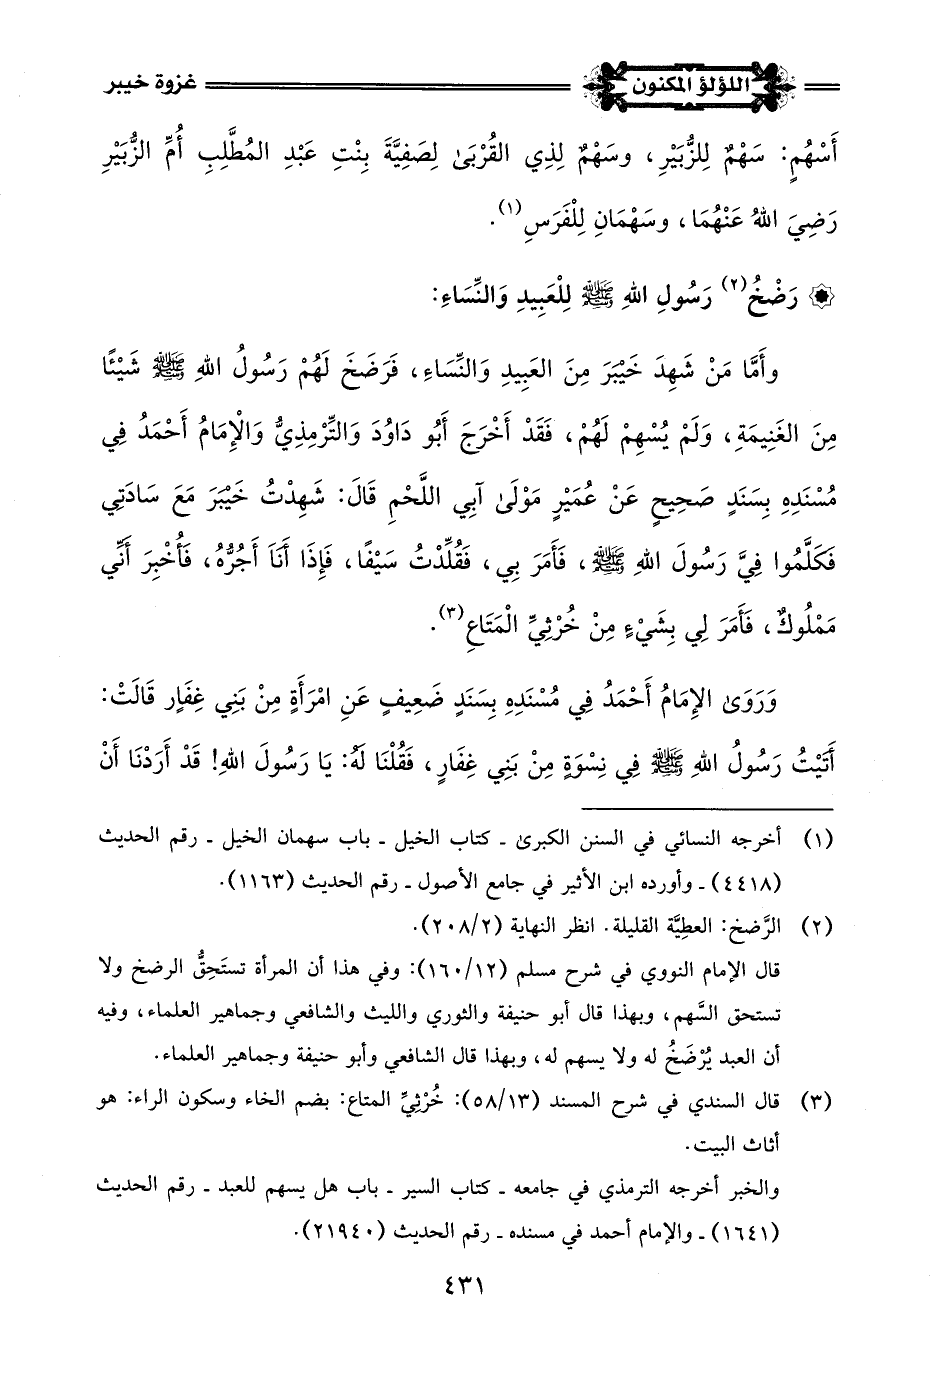 اللؤلؤ المكنون غزوة خيبر
أَسْهُمٍ: سَهْمٌ لِلزُّبَيْرِ، وسَهْمٌ لِذِي القُرْبَىٰ لِصَفِيَّةَ بِنْتِ عَبْدِ المُطَّلِبِ أُمِّ الزُّبَيْرِ
رَضِيَ اللهُ عَنْهُمَا، وسَهْمَانِ لِلْفَرَسِ(١).
۞ رَضْخُ(٢) رَسُولِ اللهِ ﷺ لِلْعَبِيدِ وَالنِّسَاءِ:
وأَمَّا مَنْ شَهِدَ خَيْبَرَ مِنَ العَبِيدِ وَالنِّسَاءِ، فَرَضَخَ لَهُمْ رَسُولُ اللهِ ﷺ شَيْئًا
مِنَ الغَنِيمَةِ، وَلَمْ يُسْهِمْ لَهُمْ، فَقَدْ أَخْرَجَ أَبُو دَاوُدَ وَالتِّرْمِذِيُّ وَالْإِمَامُ أَحْمَدُ فِي
مُسْنَدِهِ بِسَنَدٍ صَحِيحٍ عَنْ عُمَيْرٍ مَوْلَىٰ آبِي اللَّحْمِ قَالَ: شَهِدْتُ خَيْبَرَ مَعَ سَادَتِي
فَكَلَّمُوا فِيَّ رَسُولَ اللهِ ﷺ، فَأَمَرَ بِي، فَقُلِّدْتُ سَيْفًا، فَإِذَا أَنَا أَجُرُّهُ، فَأُخْبِرَ أَنِّي
مَمْلُوكٌ، فَأَمَرَ لِي بِشَيْءٍ مِنْ خُرْثِيِّ الْمَتَاعِ(٣).
وَرَوَىٰ الإِمَامُ أَحْمَدُ فِي مُسْنَدِهِ بِسَنَدٍ ضَعِيفٍ عَنِ امْرَأَةٍ مِنْ بَنِي غِفَارٍ قَالَتْ:
أَتَيْتُ رَسُولُ اللهِ ﷺ فِي نِسْوَةٍ مِنْ بَنِي غِفَارٍ، فَقُلْنَا لَهُ: يَا رَسُولَ اللهِ! قَدْ أَرَدْنَا أَنْ
(١) أخرجه النسائي في السنن الكبرىٰ ـ كتاب الخيل ـ باب سهمان الخيل ـ رقم الحديث
(٤٤١٨) ـ وأورده ابن الأثير في جامع الأصول ـ رقم الحديث (١١٦٣).
(٢) الرَّضخ: العطِيَّة القليلة. انظر النهاية (٢٠٨/٢).
قال الإمام النووي في شرح مسلم (١٦٠/١٢): وفي هذا أن المرأة تستَحِقُّ الرضخ ولا
تستحق السَّهم، وبهذا قال أبو حنيفة والثوري والليث والشافعي وجماهير العلماء، وفيه
أن العبد يُرْضَخُ له ولا يسهم له، وبهذا قال الشافعي وأبو حنيفة وجماهير العلماء.
(٣) قال السندي في شرح المسند (٥٨/١٣): خُرْثِيِّ المتاع: بضم الخاء وسكون الراء: هو
أثاث البيت.
والخبر أخرجه الترمذي في جامعه ـ كتاب السير ـ باب هل يسهم للعبد ـ رقم الحديث
(١٦٤١) ـ والإمام أحمد في مسنده ـ رقم الحديث (٢١٩٤٠).
٤٣١